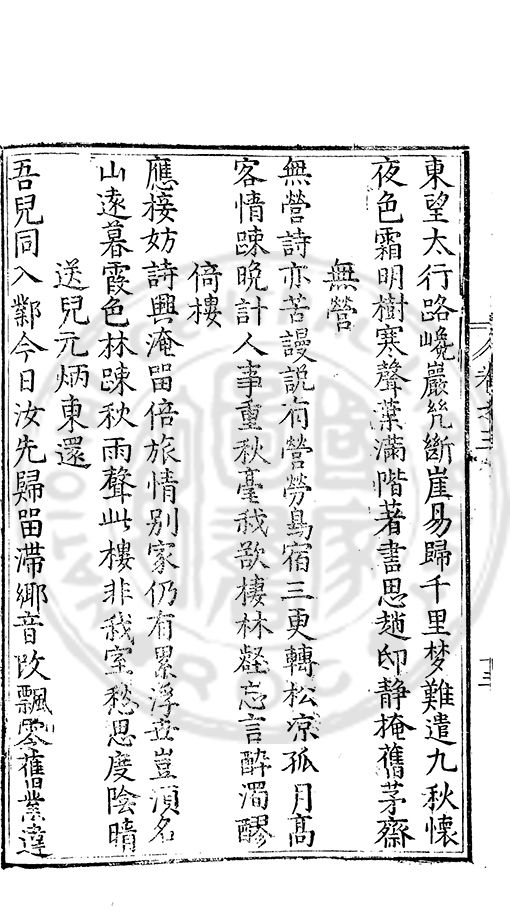 東望太行路巉巖𠒋斷崖易歸千里梦難遣九秋懷
夜色霜明樹寒聲葉滿階著書思趙卬靜掩舊茅齋
無營
無營詩亦苦謾説有營勞鳥宿三更轉松凉孤月高
客情踈晩計人事重秋毫我欲棲林壑忘言醉濁醪
倚樓
應接妨詩興淹畱倍旅情别家仍有累浮世豈湏名
山遠暮霞色林踈秋雨聲此樓非我室愁思度陰晴
送兒元炳東還
吾兒同入鄴今日汝先歸畱滯鄉音改飄零舊業違
卷之三